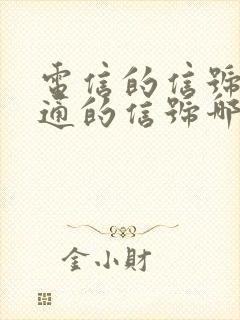 電信的信號
通的信號哪
金小財